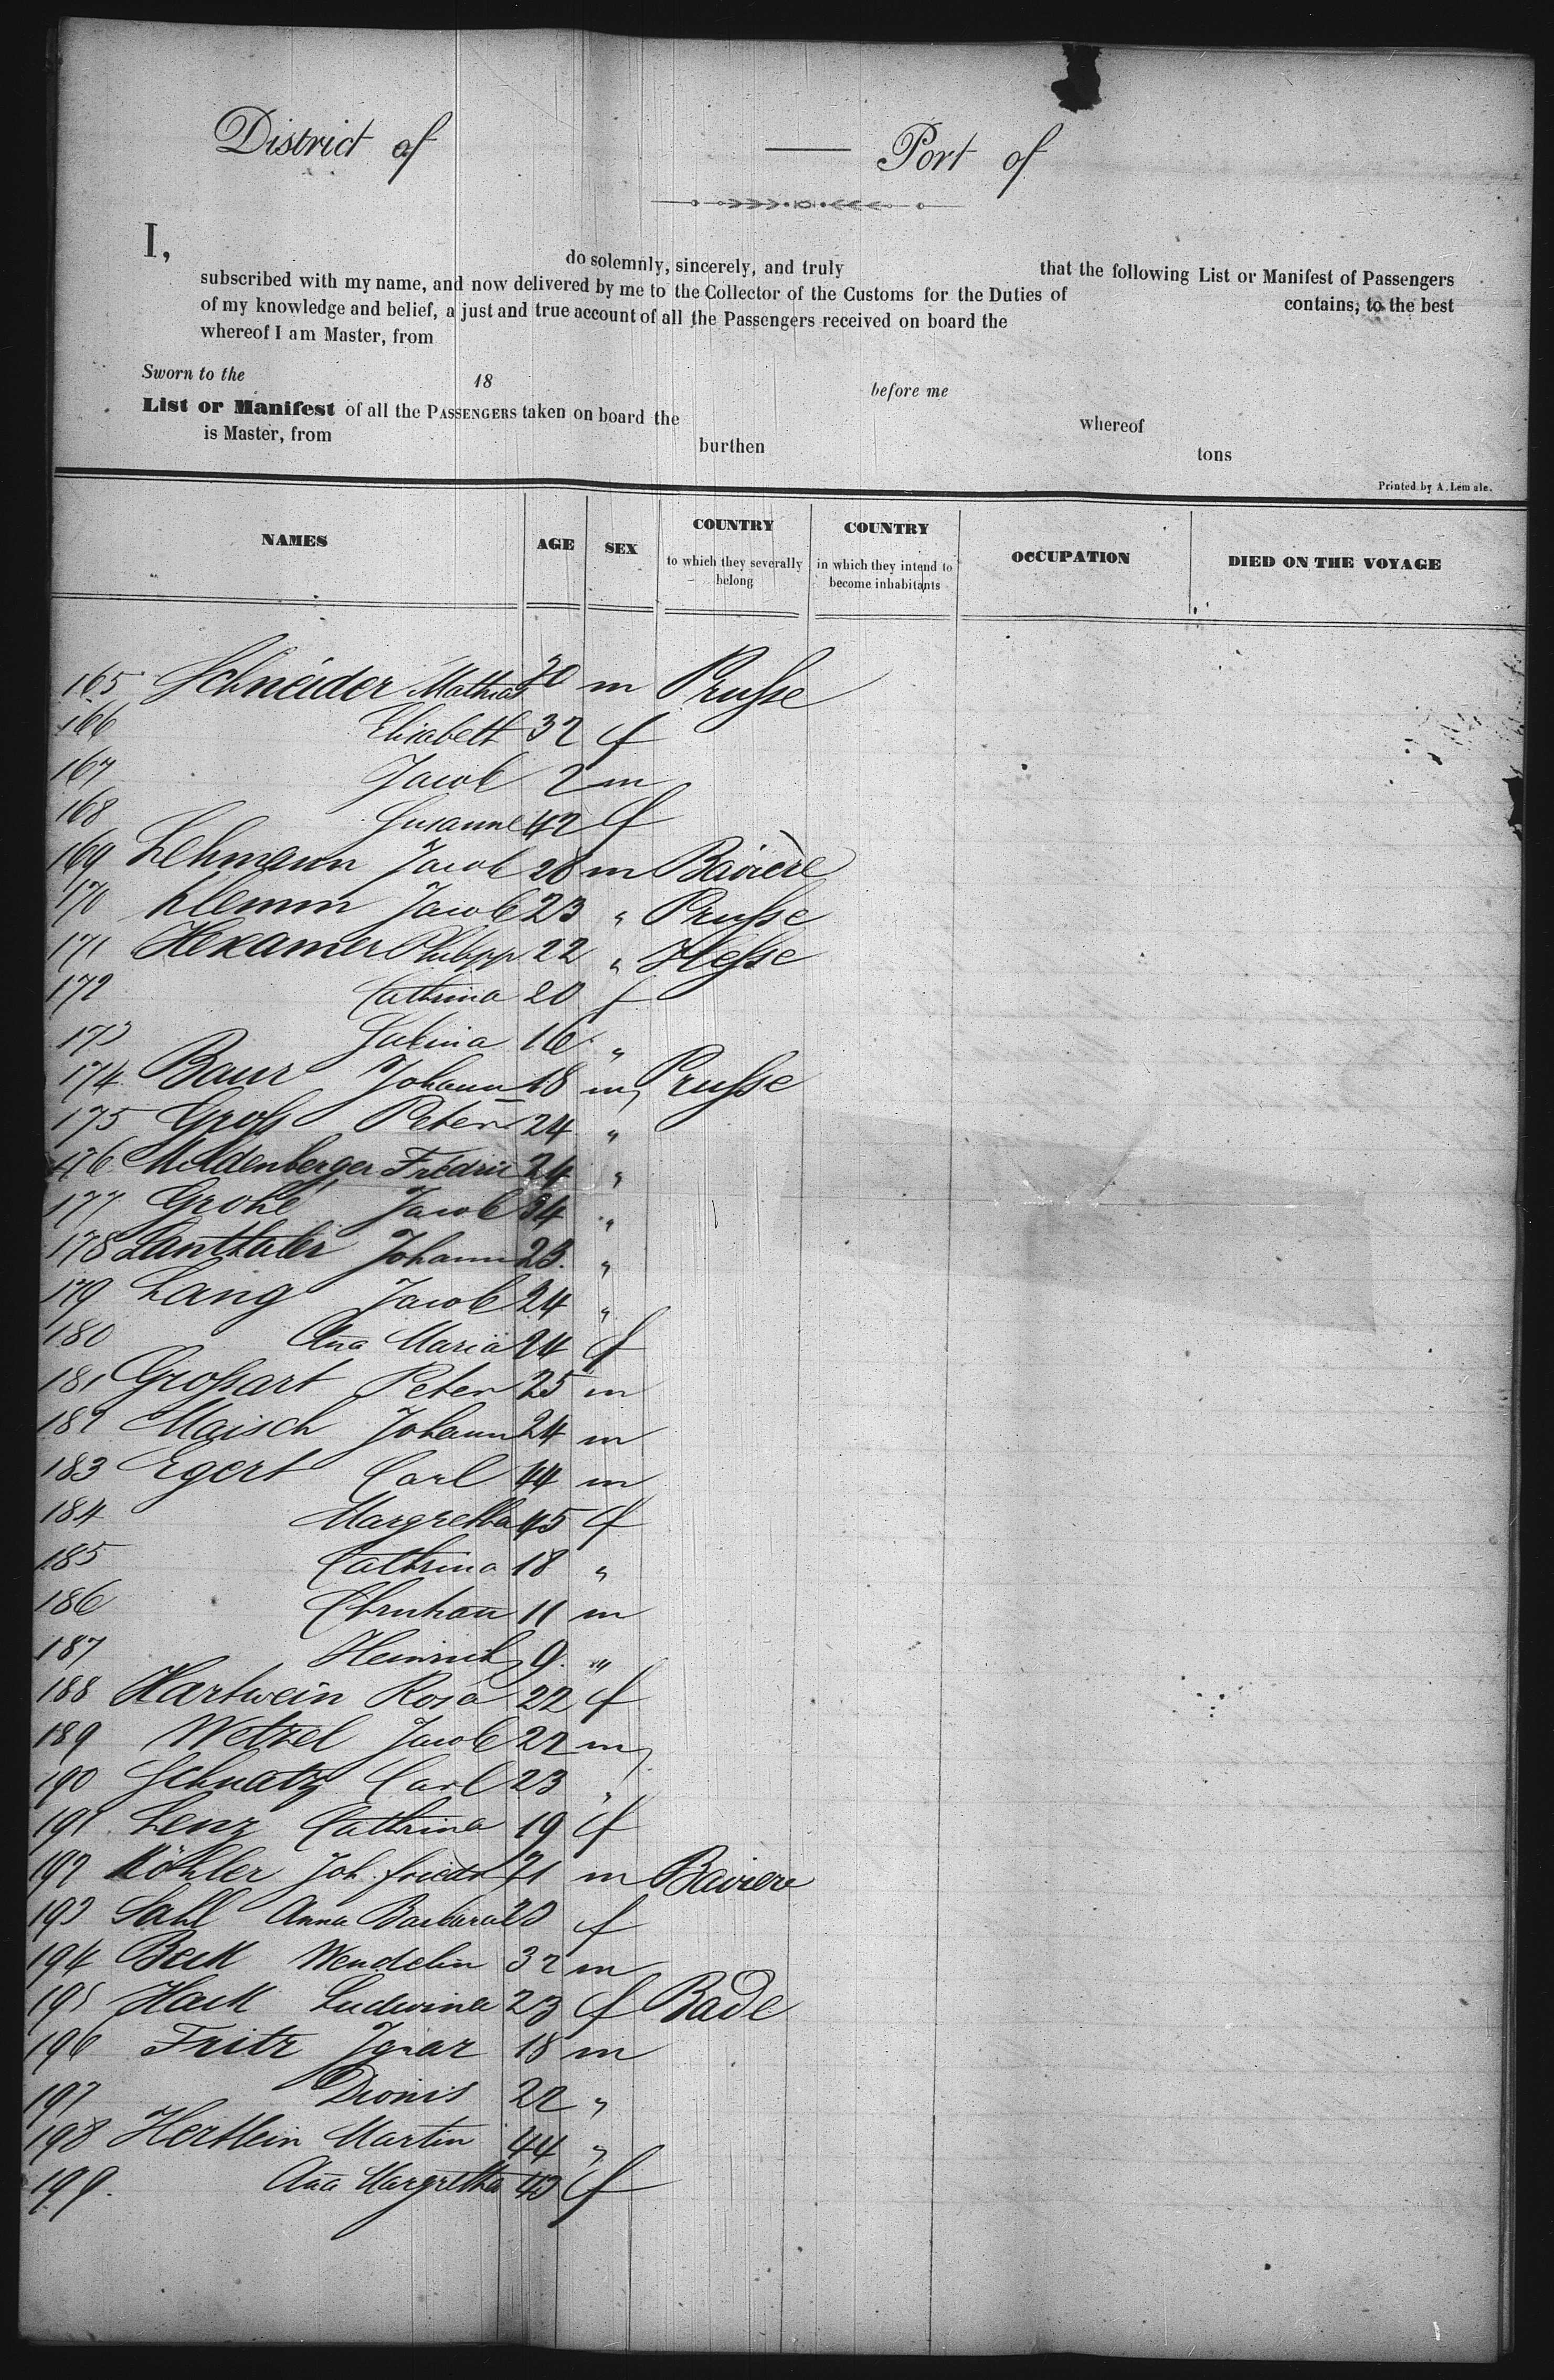 District of — Port of
I, do solemnly, sincerely, and truly that the following List or Manifest of Passengers
subscribed with my name, and now delivered by me to the Collector of the Customs for the Duties of contains, to the best
of my knowledge and belief, a just and true account of all the Passengers received on board the
whereof I am Master, from
Sworn to the 18 before me
List or Manifest of all the PASSENGERS taken on board the whereof
is Master, from burthen tons
Printed by A. Lemale.
NAMES AGE SEX COUNTRY to which they severally belong COUNTRY in which they intend to become inhabitants OCCUPATION DIED ON THE VOYAGE
165 Schneider Mathias 30 m Prusse
166 Elisabeth 32 f
167 Jacob 2 m
168 Susanne 42 f
169 Lehmann Jacob 28 m Bavière
170 Klemm Jacob 23 " Prusse
171 Hexamer Philipp 22 " Hesse
172 Cathrina 20 f
173 Sabina 16 "
174 Baur Johann 18 m Prusse
175 Gross Peter 24 "
176 Mildenberger Fredric 24 "
177 Grohé Jacob 34 "
178 Lanthaler Johann 23. "
179 Lang Jacob 24 "
180 Ana Maria 24 f
181 Grossart Peter 25 m
182 Maisch Johann 24 m
183 Egert Carl 44 m
184 Margretha 45 f
185 Cathrina 18 "
186 11 m
187 Heinrich 9. "
188 Hartwein Rosa 22 f
189 Wetzel Jacob 22 m
190 Schnatz Carl 23 "
191 Lenz Cathrina 19 f
192 Köhler Joh. Friedr 21 m Baviere
193 Sahl Anna Barbara 20 f
194 Beck Wendelin 32 m
195 Hack Ludwina 23 f Bade
196 Fritz Ignaz 18 m
197 Dionis 22 "
198 Hertlein Martin 44 "
199. Ana Margretha 43 f